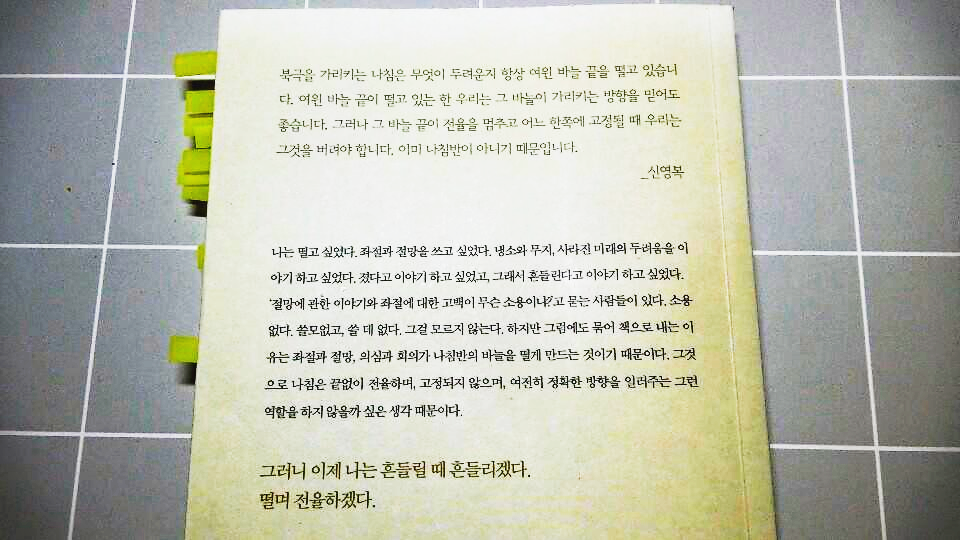 북극을 가리키는 나침은 무엇이 두려운지 항상 여윈 바늘 끝을 떨고 있습니
다. 여윈 바늘 끝이 떨고 있는 한 우리는 그 바늘이 가리키는 방향을 믿어도
좋습니다. 그러나 그 바늘 끝이 전율을 멈추고 어느 한쪽에 고정될 때 우리는
그것을 버려야 합니다. 이미 나침반이 아니기 때문입니다.
_신영복
나는 떨고 싶었다. 좌절과 절망을 쓰고 싶었다. 냉소와 무지, 사라진 미래의 두려움을 이
야기 하고 싶었다. 졌다고 이야기 하고 싶었고, 그래서 흔들린다고 이야기 하고 싶었다.
'절망에 관한 이야기와 좌절에 대한 고백이 무슨 소용이냐?'고 묻는 사람들이 있다. 소용
없다. 쓸모없고, 쓸 데 없다. 그걸 모르지 않는다. 하지만 그럼에도 묶어 책으로 내는 이
유는 좌절과 절망, 의심과 회의가 나침반의 바늘을 떨게 만드는 것이기 때문이다. 그것
으로 나침은 끝없이 전율하며, 고정되지 않으며, 여전히 정확한 방향을 일러주는 그런
역할을 하지 않을까 싶은 생각 때문이다.
그러니 이제 나는 흔들릴 때 흔들리겠다.
떨며 전율하겠다.